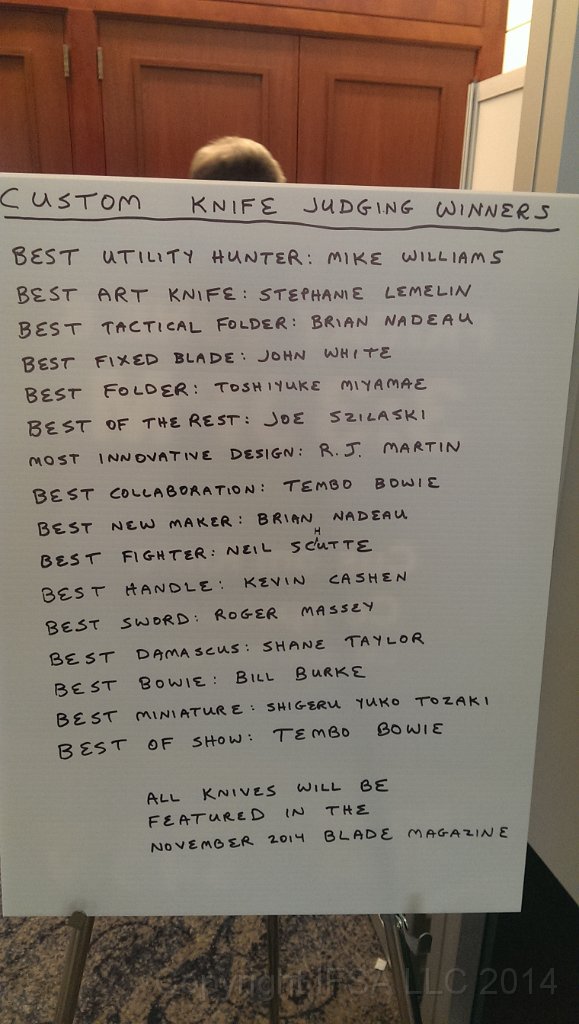 CUSTOM KNIFE JUDGING WINNERS
BEST UTILITY HUNTER: MIKE WILLIAMS
BEST ART KNIFE: STEPHANIE LEMELIN
BEST TACTICAL FOLDER: BRIAN NADEAU
BEST FIXED BLADE: JOHN WHITE
BEST FOLDER: TOSHIYUKE MIYAMAE
BEST OF THE REST: JOE SZILASKI
MOST INNOVATIVE DESIGN: R.J. MARTIN
BEST COLLABORATION: TEMBO BOWIE
BEST NEW MAKER: BRIAN NADEAU
BEST FIGHTER: NEIL SCHUTTE
BEST HANDLE: KEVIN CASHEN
BEST SWORD: ROGER MASSEY
BEST DAMASCUS: SHANE TAYLOR
BEST BOWIE: BILL BURKE
BEST MINIATURE: SHIGERU YUKO TOZAKI
BEST OF SHOW: TEMBO BOWIE
ALL KNIVES WILL BE
FEATURED IN THE
NOVEMBER 2014 BLADE MAGAZINE
Copyright IFSA LLC 2014